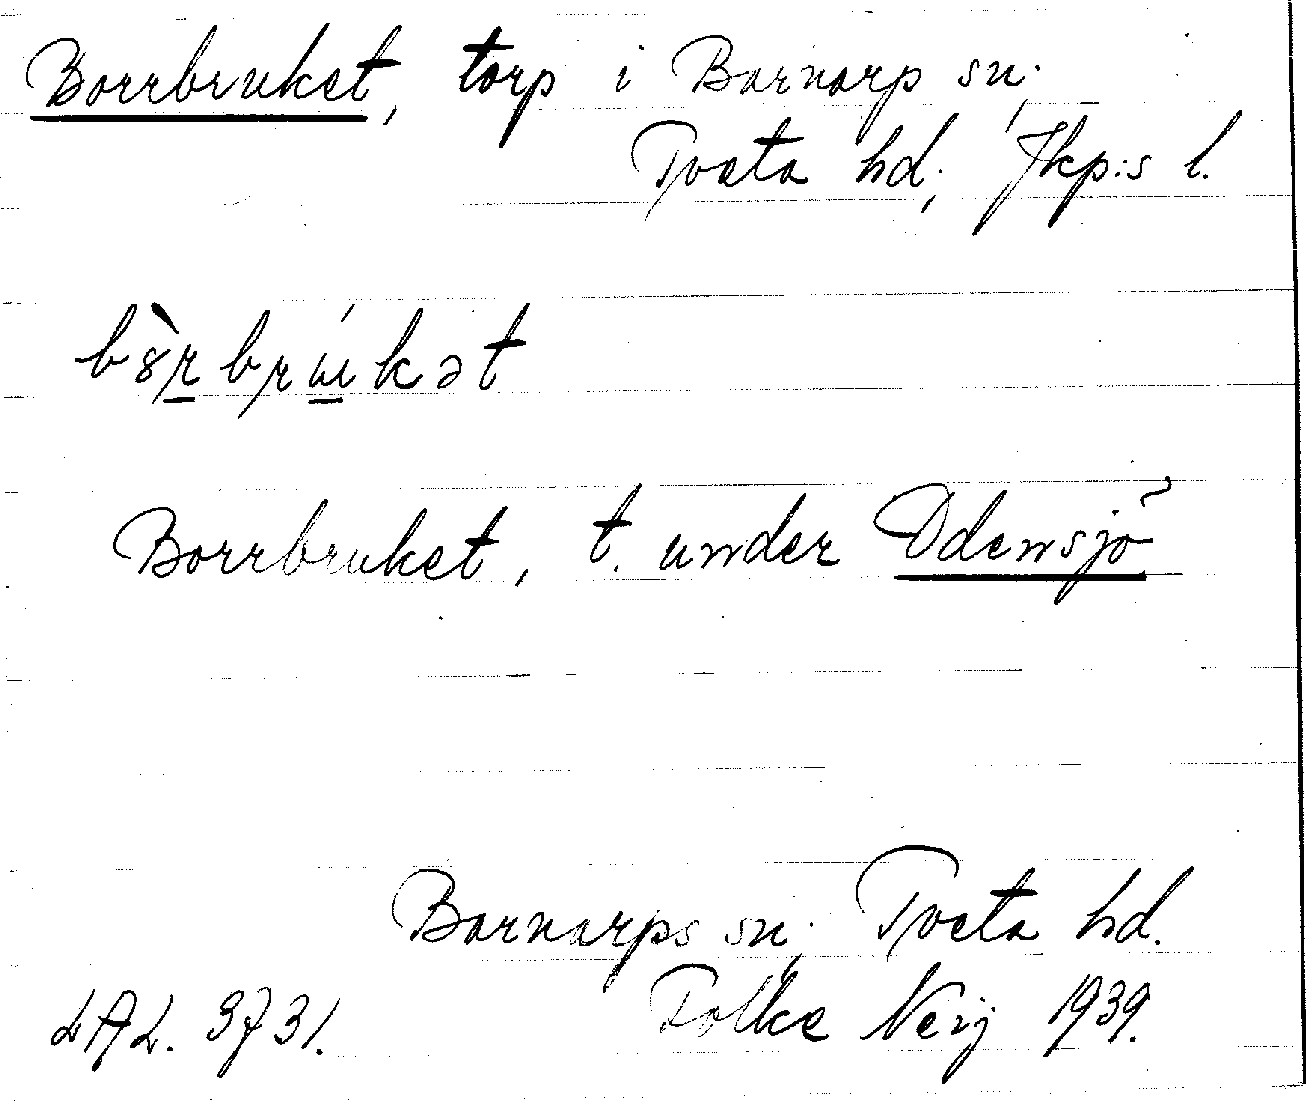 Borrbruket, torp i Barnarp sn;
Tveta hd; Jkp:s l.
bȣ̀r̠brú̠kət
Borrbruket, t. under Odensjö
Barnarps sn; Tveta hd.
LAL. 3731. Folke Neij 1939.